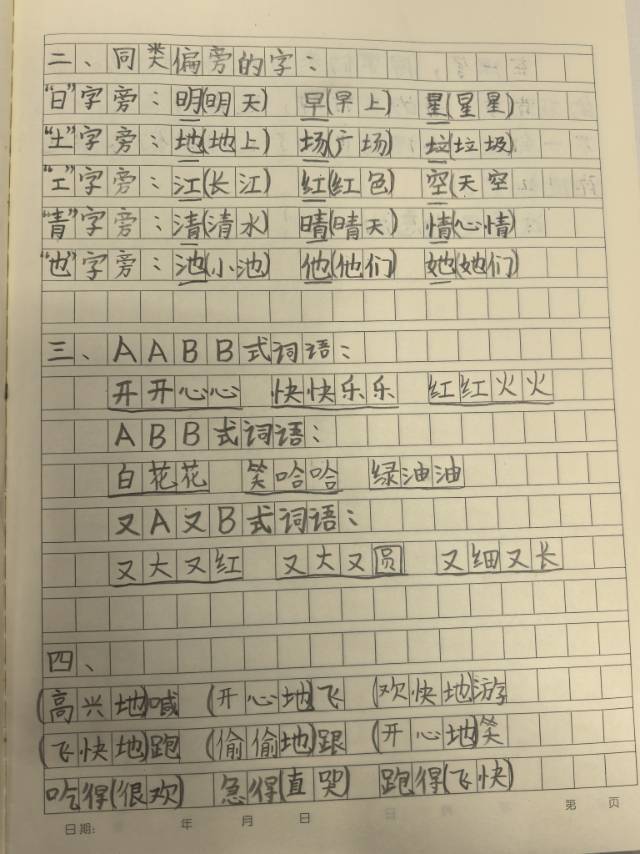 二、同类偏旁的字：
“日”字旁：明(明天) 早(早上) 星(星星)
“土”字旁：地(地上) 场(广场) 垃(垃圾)
“工”字旁：江(长江) 红(红色) 空(天空
“青”字旁：清(清水) 晴(晴天) 情(心情)
“也”字旁：池(小池) 他(他们) 她(她们)
三、AABB式词语：
开开心心 快快乐乐 红红火火
ABB式词语：
白花花 笑哈哈 绿油油
又A又B式词语：
又大又红 又大又圆 又细又长
四、
(高兴地)喊 (开心地)飞 (欢快地)游
(飞快地)跑 (偷偷地)跟 (开心地)笑
吃得(很欢) 急得(直哭) 跑得(飞快)
日期： 年 月 日 第 页